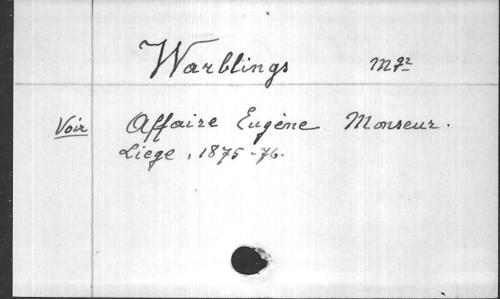 Warblings Mgr
Voir Affaire Eugène Monseur.
Liege, 1875-76.